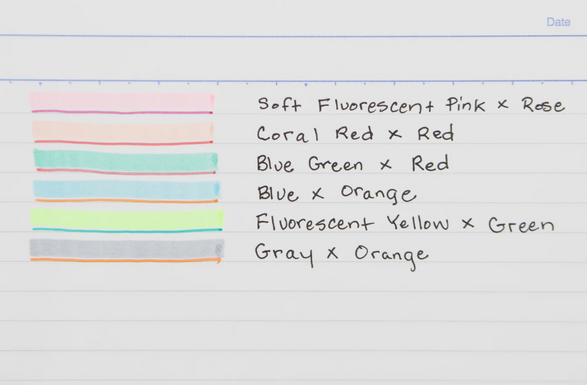 Date
Soft Fluorescent Pink x Rose
Coral Red x Red
Blue Green x Red
Blue x Orange
Fluorescent Yellow x Green
Gray x Orange